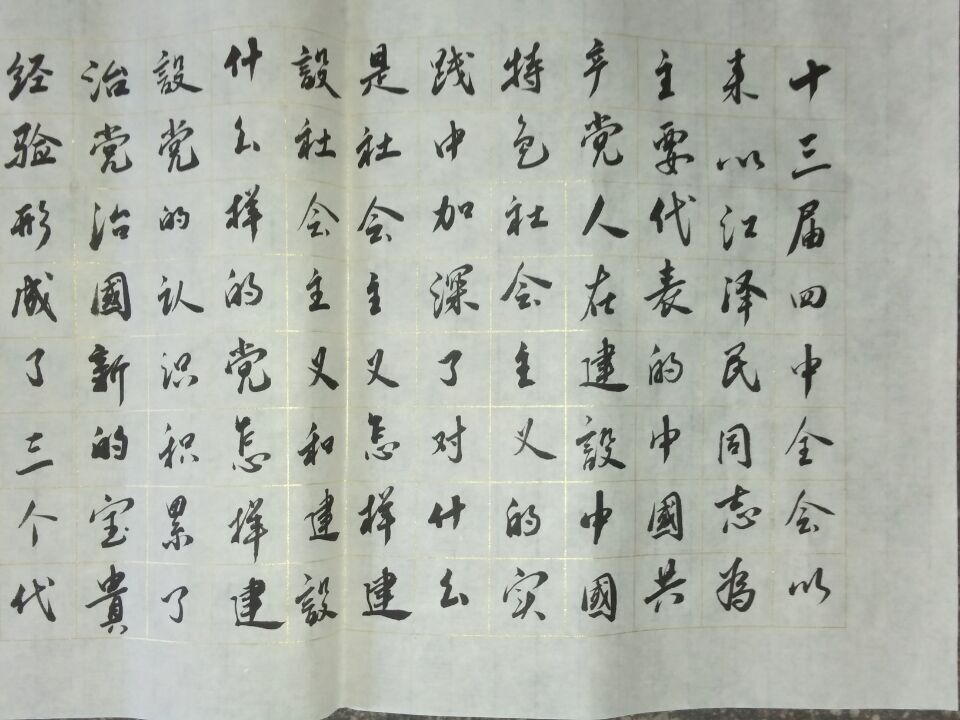 十三届四中全会以
来以江泽民同志为
主要代表的中國共
产党人在建設中國
特色社会主义的实
践中加深了对什么
是社会主义怎样建
設社会主义和建設
什么样的党怎样建
設党的认识积累了
治党治國新的宝貴
经验形成了三个代